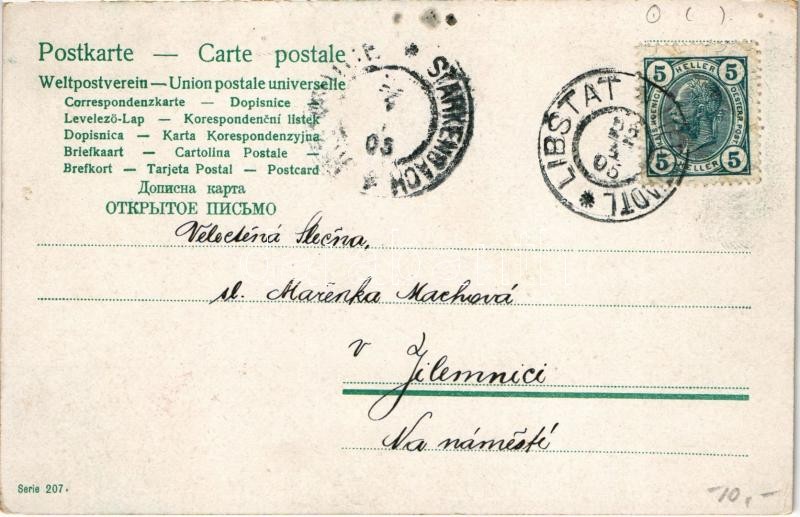 Postkarte — Carte postale
Weltpostverein — Union postale universelle
Correspondenzkarte — Dopisnice
Levelező-Lap — Korespondenční lístek
Dopisnica — Karta Korespondenzyjna
Briefkaart — Cartolina Postale
Brefkort — Tarjeta Postal — Postcard
Дописна карта
ОТКРЫТОЕ ПИСЬМО
STARKENBACH
05
LIBŠTAT
05
5 HELLER 5
5 HELLER 5
Veloctěná Slečna,
sl. Mařenka Machová
v
Jilemnici
Na náměstí
Serie 207.
-10,-